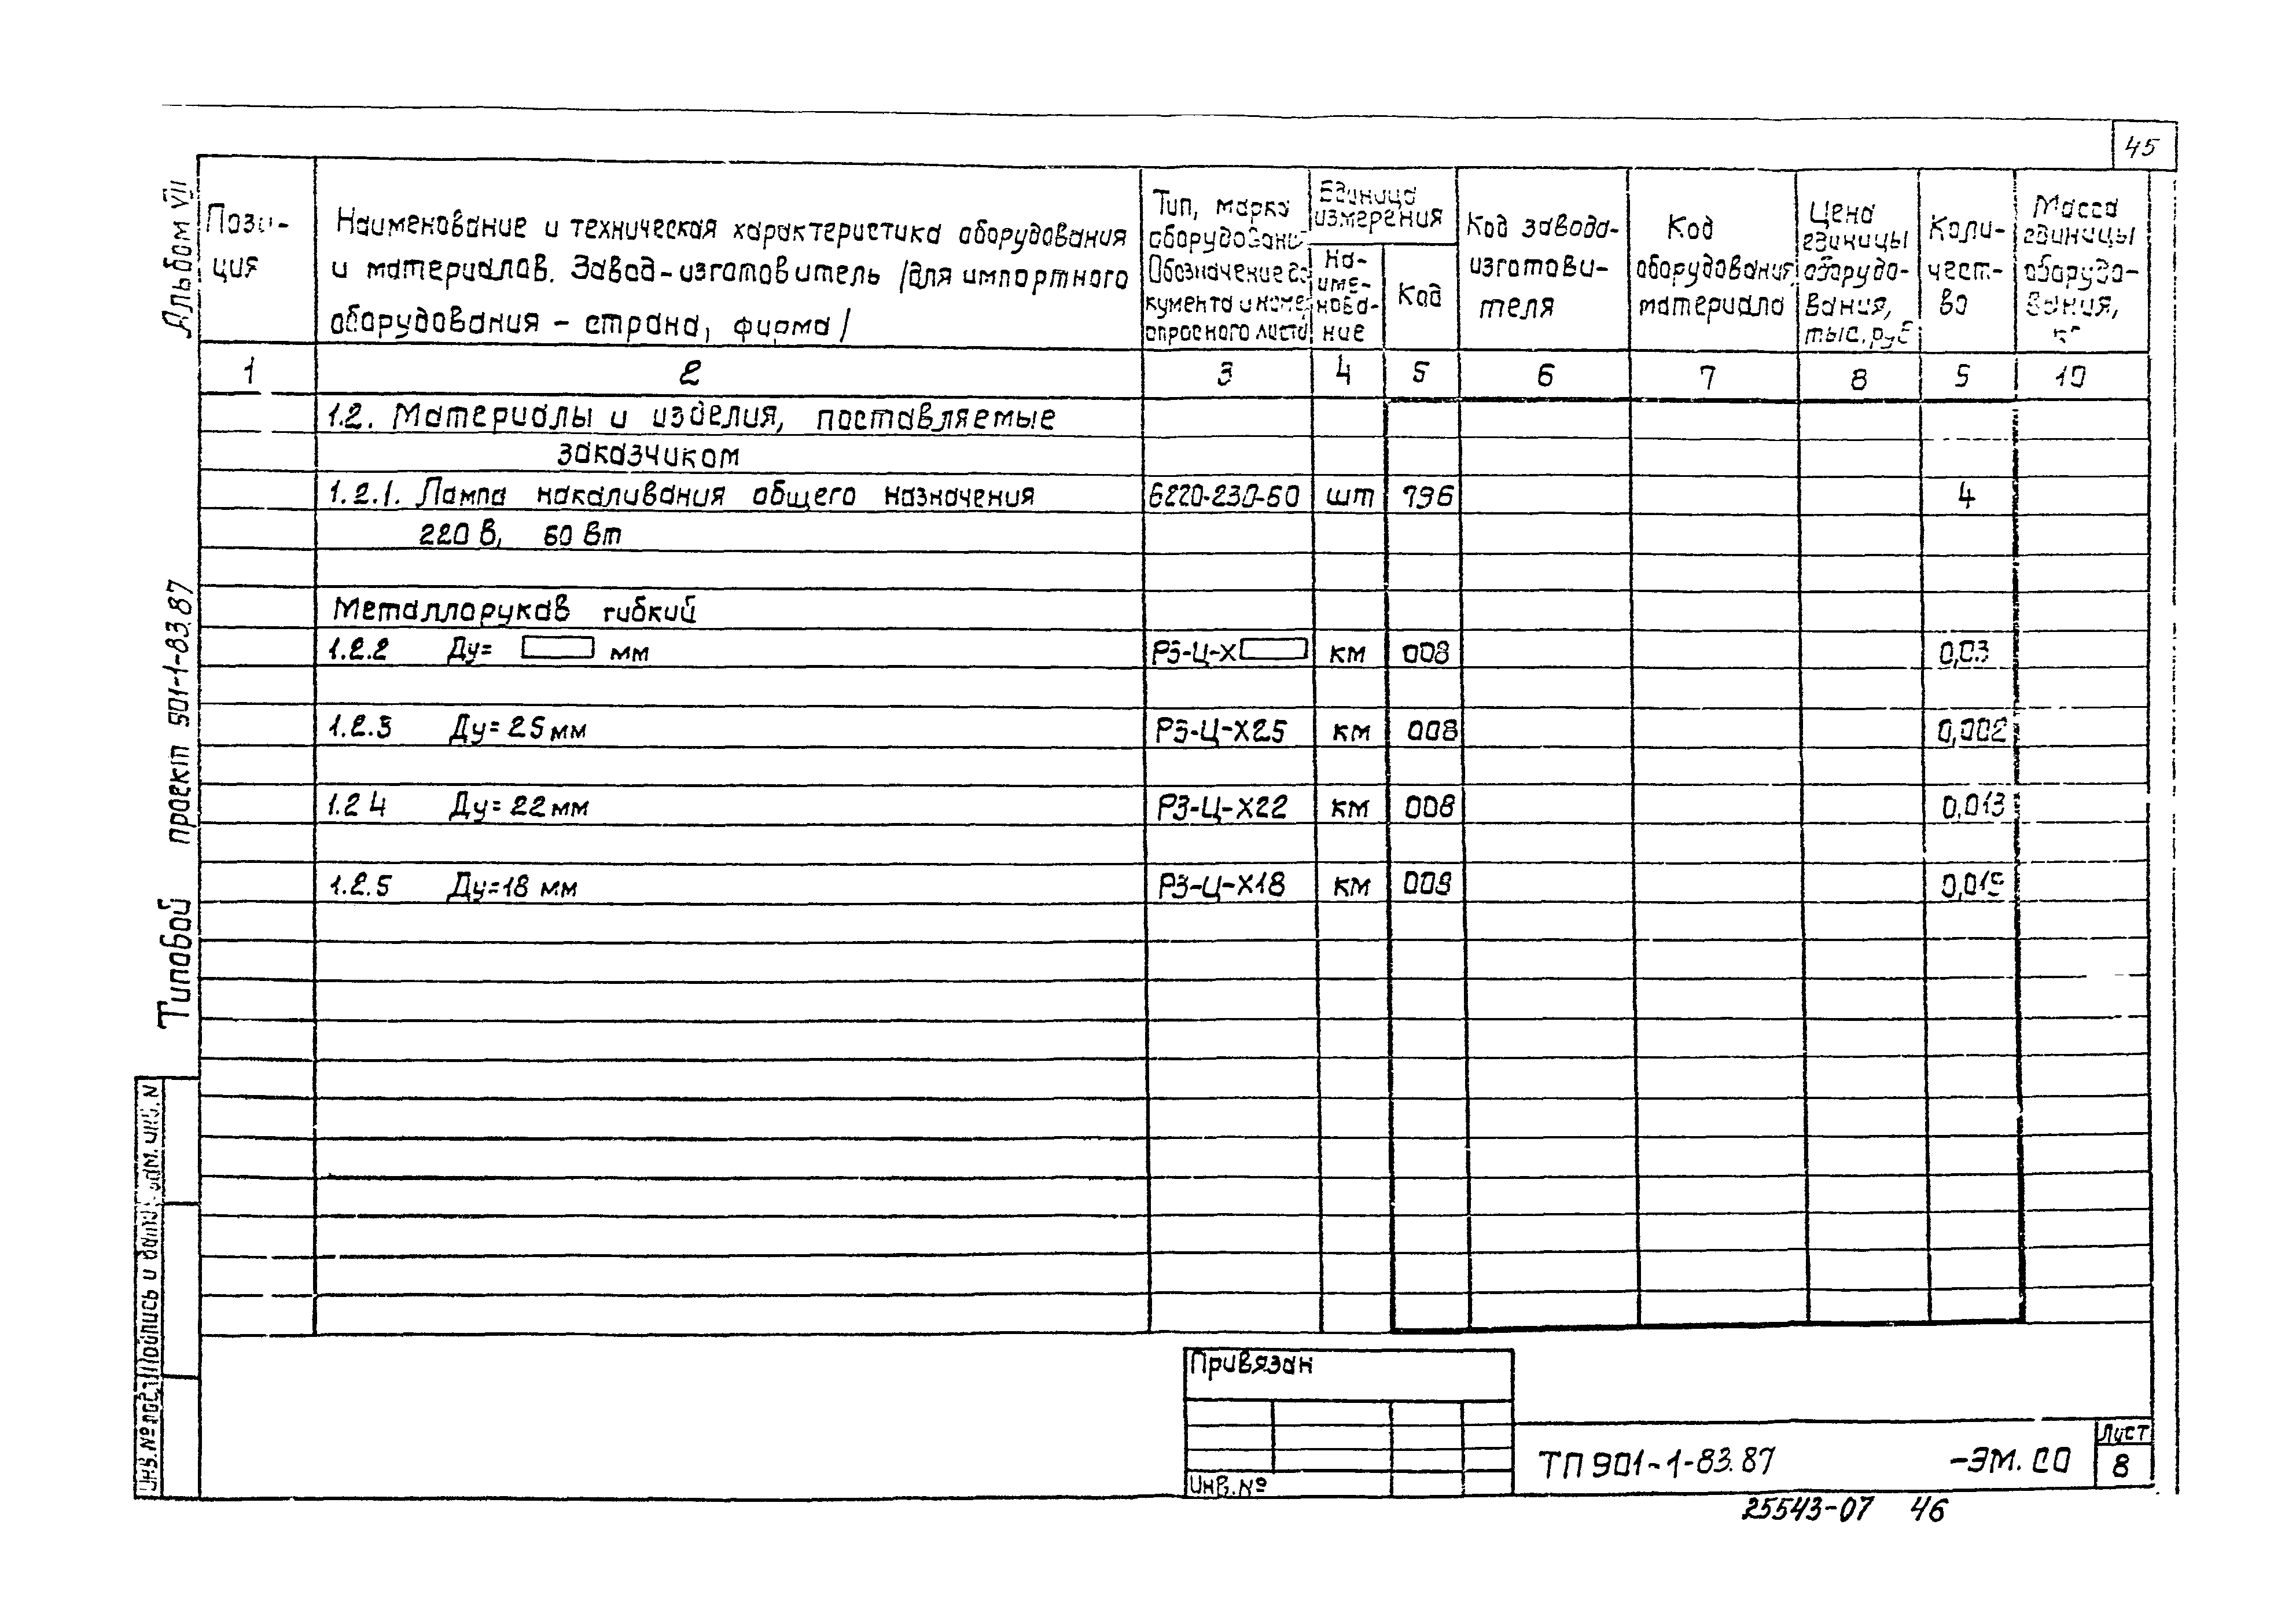 45
Альбом VII
Типовой проект 901-1-83.87
Пози-
ция
Наименование и техническая характеристика оборудования
и материалов. Завод-изготовитель /для импортного
оборудования - страна, фирма/
Тип, марка
оборудовани
Обозначение до
кумента и номер
опросного листа
Единица
измерения
На-
име-
нова-
ние
Код
Код завода-
изготови-
теля
Код
оборудования,
материала
Цена
единицы
оборудо-
вания,
тыс. руб
Коли-
чест-
во
Масса
единицы
оборудо-
вания,
кг
1 2 3 4 5 6 7 8 9 10
1.2. Материалы и изделия, поставляемые
заказчиком
1.2.1. Лампа накаливания общего назначения Б220-230-60 шт 796 4
220 В, 60 Вт
Металлорукав гибкий
1.2.2 Ду= мм РЗ-Ц-Х км 008 0,03
1.2.3 Ду=25 мм РЗ-Ц-Х25 км 008 0,002
1.2.4 Ду=22 мм РЗ-Ц-Х22 км 008 0,013
1.2.5 Ду=18 мм РЗ-Ц-Х18 км 008
Инв.№ подл. Подпись и дата Взам. инв. N
Привязан
Инв.№
ТП 901-1-83.87 -ЭМ.СО
Лист
8
25543-07 46